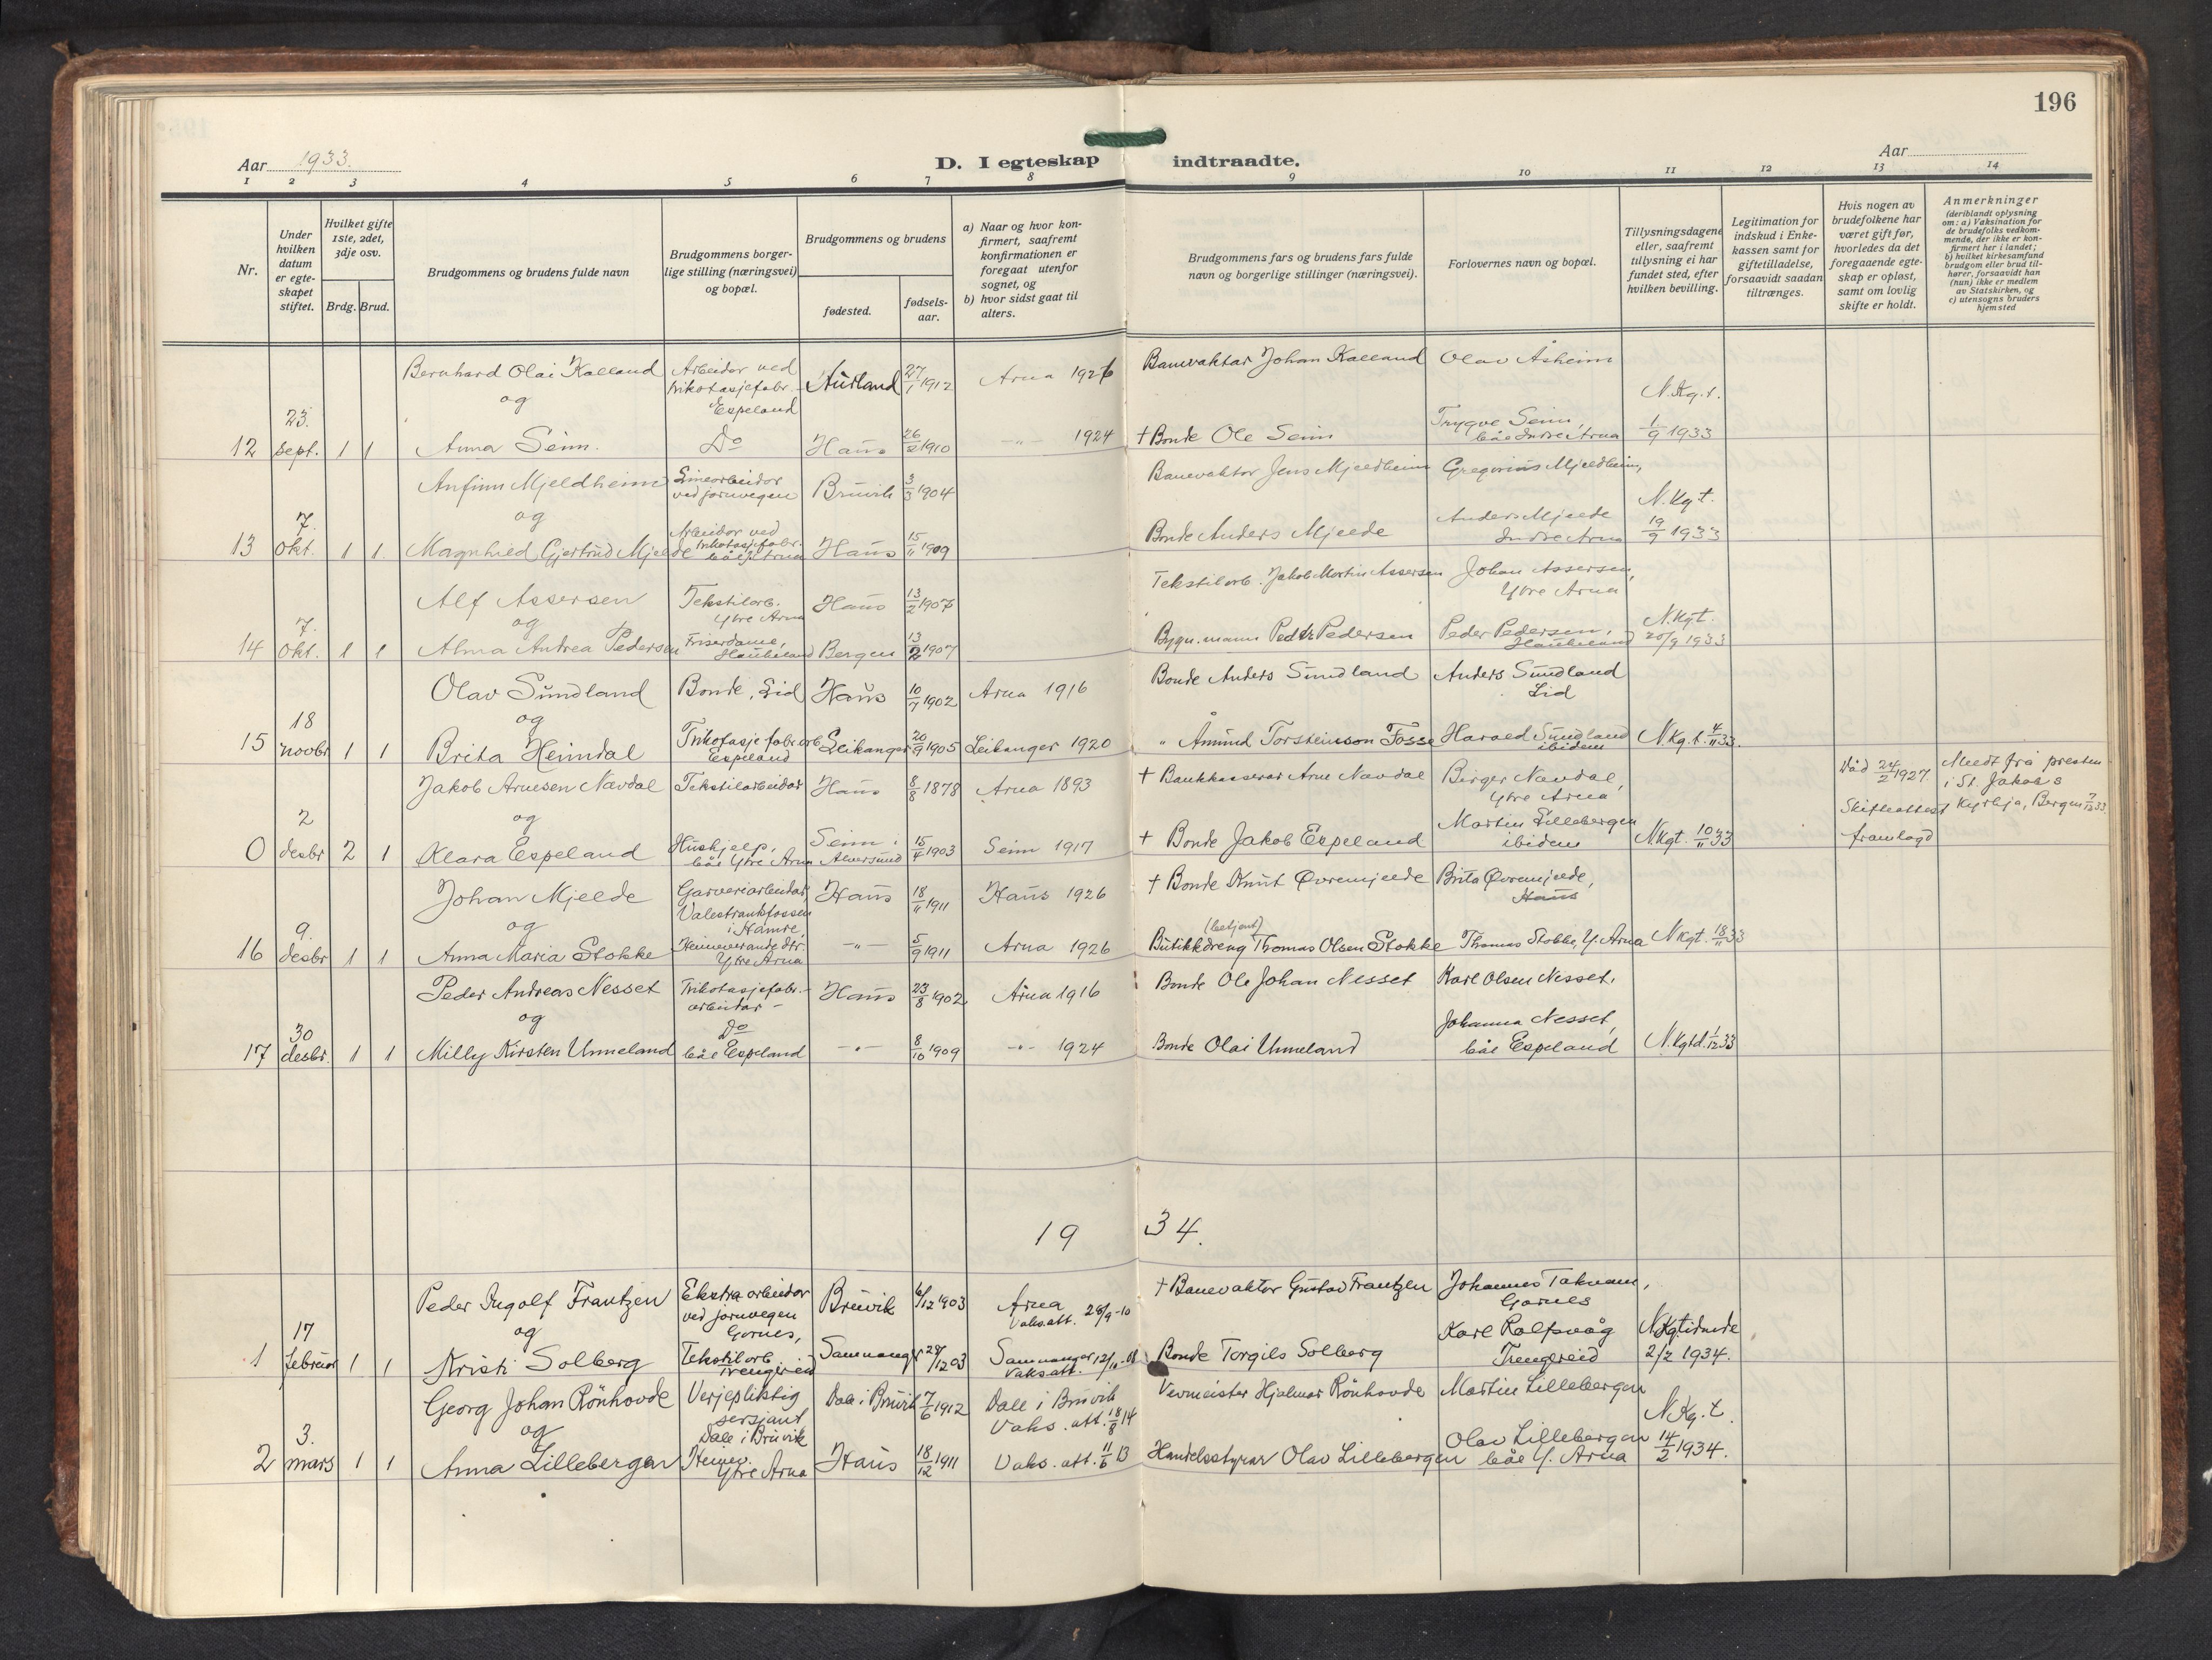 196
Aar 1933.
D. I egteskap indtraadte.
Aar
1 2 3 4 5 6 7 8 9 10 11 12 13 14
Nr.
Under hvilken datum er egteskapet stiftet.
Hvilket gifte 1ste, 2det, 3dje osv.
Brdg. Brud.
Brudgommens og brudens fulde navn
Brudgommens borgerlige stilling (næringsvei) og bopæl.
Brudgommens og brudens
fødested.
fødsels-aar.
a) Naar og hvor konfirmert, saafremt konfirmationen er foregaat utenfor sognet, og
b) hvor sidst gaat til alters.
Brudgommens fars og brudens fars fulde navn og borgerlige stillinger (næringsvei).
Forlovernes navn og bopæl.
Tillysningsdagene eller, saafremt tillysning ei har fundet sted, efter hvilken bevilling.
Legitimation for indskud i Enkekassen samt for giftetilladelse, forsaavidt saadan tiltrænges.
Hvis nogen av brudefolkene har været gift før, hvorledes da det foregaaende egteskap er opløst, samt om lovlig skifte er holdt.
Anmerkninger
(deriblandt oplysning om: a) Vaksination for de brudefolks vedkommende, der ikke er konfirmert her i landet; b) hvilket kirkesamfund brudgom eller brud tilhører, forsaavidt han (hun) ikke er medlem av Statskirken, og c) utensogns bruders hjemsted
Bernhard Olai Kalland Arbeidar ved trikotasjefabr. Espeland Aurland 27/1 1912 Arna 1926 Banevaktar Johan Kalland Olav Åsheim
og
12 23. sept. 1 1 Anna Seim. Do Haus 26/2 1910 -"- 1924 + Bonde Ole Seim Trygve Seim, båe Indre Arna N.kg.t. 1/9 1933
Anfinn Mjeldheim Linearbeidar ved jarnvegen Bruvik 3/3 1904 Banevaktar Jens Mjeldheim Gregorius Mjeldheim,
og
13 7. okt. 1 1. Magnhild Gjertrud Mjelde Arbeidar ved trikotasjefabr. båe I. Arna Haus 15/11 1909 Bonde Anders Mjelde Anders Mjelde Indre Arna N.kgt. 19/9 1933
Alf Assersen Tekstilarb. Ytre Arna Haus 13/2 1907 Tekstilarb. Jakob Martin Assersen Johan Assersen, Ytre Arna
og
14 7. okt. 1 1 Alma Andrea Pedersen Friserdame, Haukeland Bergen 13/2 1907 Bygn.mann Peder Pedersen Peder Pedersen, Haukeland N.kgt. 20/9 1933
Olav Sundland Bonde, Lid Haus 10/7 1902 Arna 1916 Bonde Anders Sundland Anders Sundland Lid
og
15 18 novbr 1 1 Brita Heimdal Trikotasjefabr.arb Espeland Leikanger 20/9 1905 Leikanger 1920 " Åmund Torsteinson Fosse Harald Sundland ibidem N.kg.t. 4/11 33.
Jakob Arnesen Navdal Tekstilarbeidar Haus 8/8 1878 Arna 1893 + Bankkasserar Arne Navdal Birger Navdal, Ytre Arna Død 24/2 1927. Skifteattest framlagd Meldt frå presten i St. Jakobs Kyrkja, Bergen 7/12 33.
og
0 2 desbr 2 1 Klara Espeland Hushjelp, båe Ytre Arna Seim i Alversund 15/4 1903 Seim 1917 + Bonde Jakob Espeland Martin Lillebergen ibidem N.kgt. 10/11 33
Johan Mjelde Garveriarbeidar, Valestrandsfossen i Hamre, Haus 18/11 1911 Haus 1926 + Bonde Knut Øvremjelde Brita Øvremjelde, Haus
og
16 9. desbr 1 1 Anna Maria Stokke Heimeverande dtr. Ytre Arna -"- 5/9 1911 Arna 1926 (betjent) Butikkdreng Thomas Olsen Stokke Thomas Stokke, Y. Arna N.kgt. 18/11 33
Peder Andreas Nesset Trikotasjefabr.-arbeidar - Haus 23/8 1902 Arna 1916 Bonde Ole Johan Nesset Karl Olsen Nesset,
og
17 30 desbr. 1 1 Milly Kirsten Unneland Do båe Espeland -"- 8/10 1909 -"- 1924 Bonde Olai Unneland Johanna Nesset, båe Espeland N.kgtd. 1/12 33
19 34.
Peder Ingolf Frantzen Ekstraarbeidar ved jarnvegen Garnes, Bruvik 6/12 1903 Arna Vaks.att. 28/9-10 + Banevaktar Gustav Frantzen Johannes Takvam, Garnes
og
1 17 februar 1 1 Kristi Solberg Tekstilarb. Trengereid Samnanger 28/12 03 Samnanger Vaks.att. Bonde Torgils Solberg Karl Rolfsvåg Trengereid N.Kg.tidende 2/2 1934.
Georg Johan Rönhovde Verjepliktig sersjant, Dale i Bruvik Dale i Bruvik 7/6 1912 Dale i Bruvik Vaks. att. 18/8 14 Vevmeister Hjalmar Rönhovde Martin Lillebergen
og
2 3. mars 1 1 Anna Lillebergen Heimev. Ytre Arna Haus 18/12 1911 Vaks. att. 11/6 13 Handelsstyrar Olav Lillebergen Olav Lillebergen båe Y. Arna N.Kg.t. 14/2 1934.